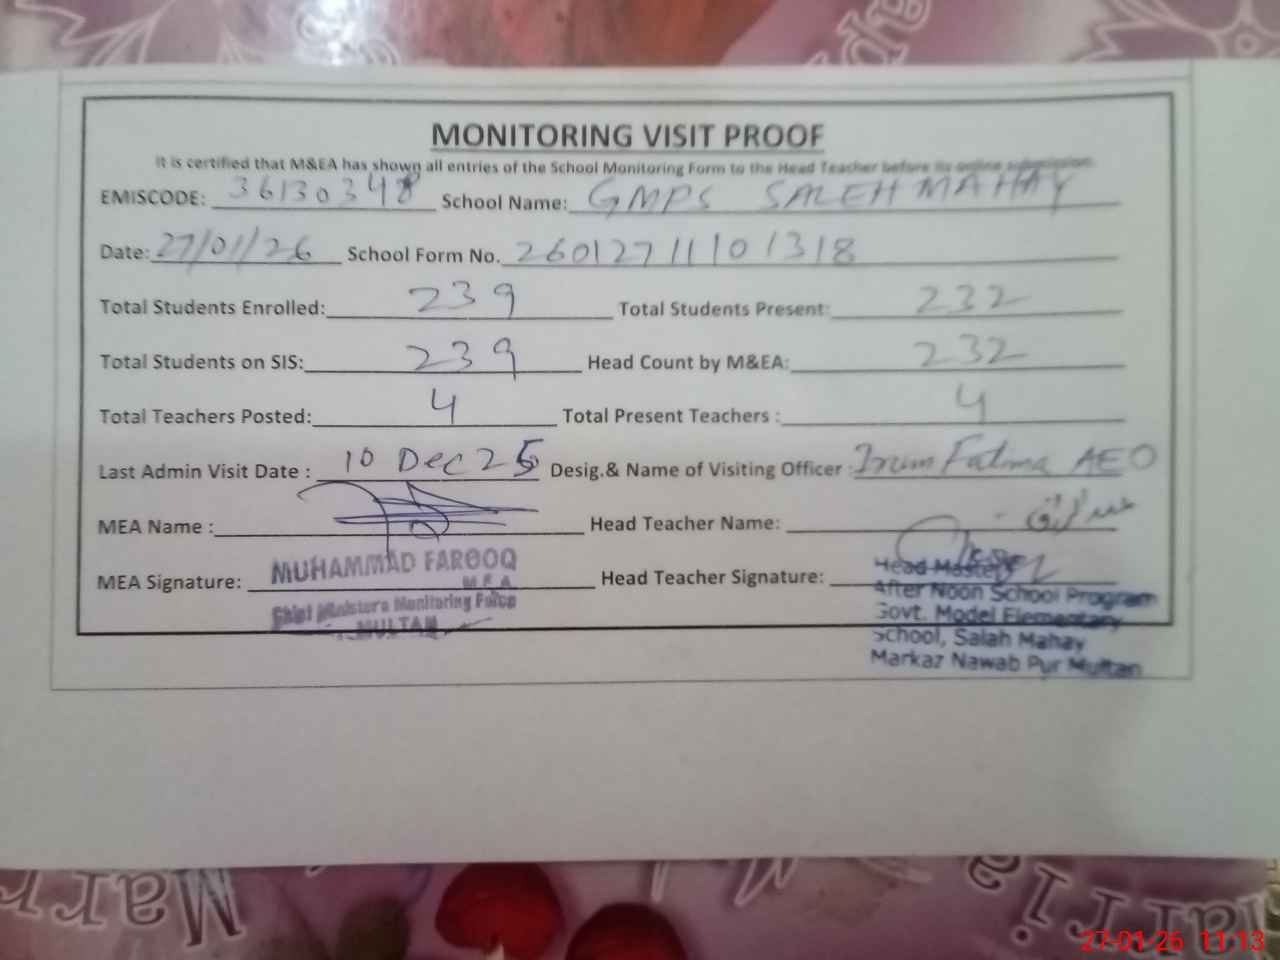 MONITORING VISIT PROOF
It is certified that M&EA has shown all entries of the School Monitoring Form to the Head Teacher before its online submission.
EMISCODE: 36130348 School Name: GMPS SALEH MAHAY
Date: 27/01/26 School Form No. 26012711101318
Total Students Enrolled: 239 Total Students Present: 232
Total Students on SIS: 239 Head Count by M&EA: 232
Total Teachers Posted: 4 Total Present Teachers : 4
Last Admin Visit Date : 10 Dec 25 Desig.& Name of Visiting Officer : Irum Fatima AEO
MEA Name : Head Teacher Name:
MEA Signature: MUHAMMAD FAROOQ Head Teacher Signature:
M E A
Chief Ministers Monitoring Force
MULTAN
Head Master
After Noon School Program
Govt. Model Elementary
School, Salah Mahay
Markaz Nawab Pur Multan
Marr
27-01-26 11:13